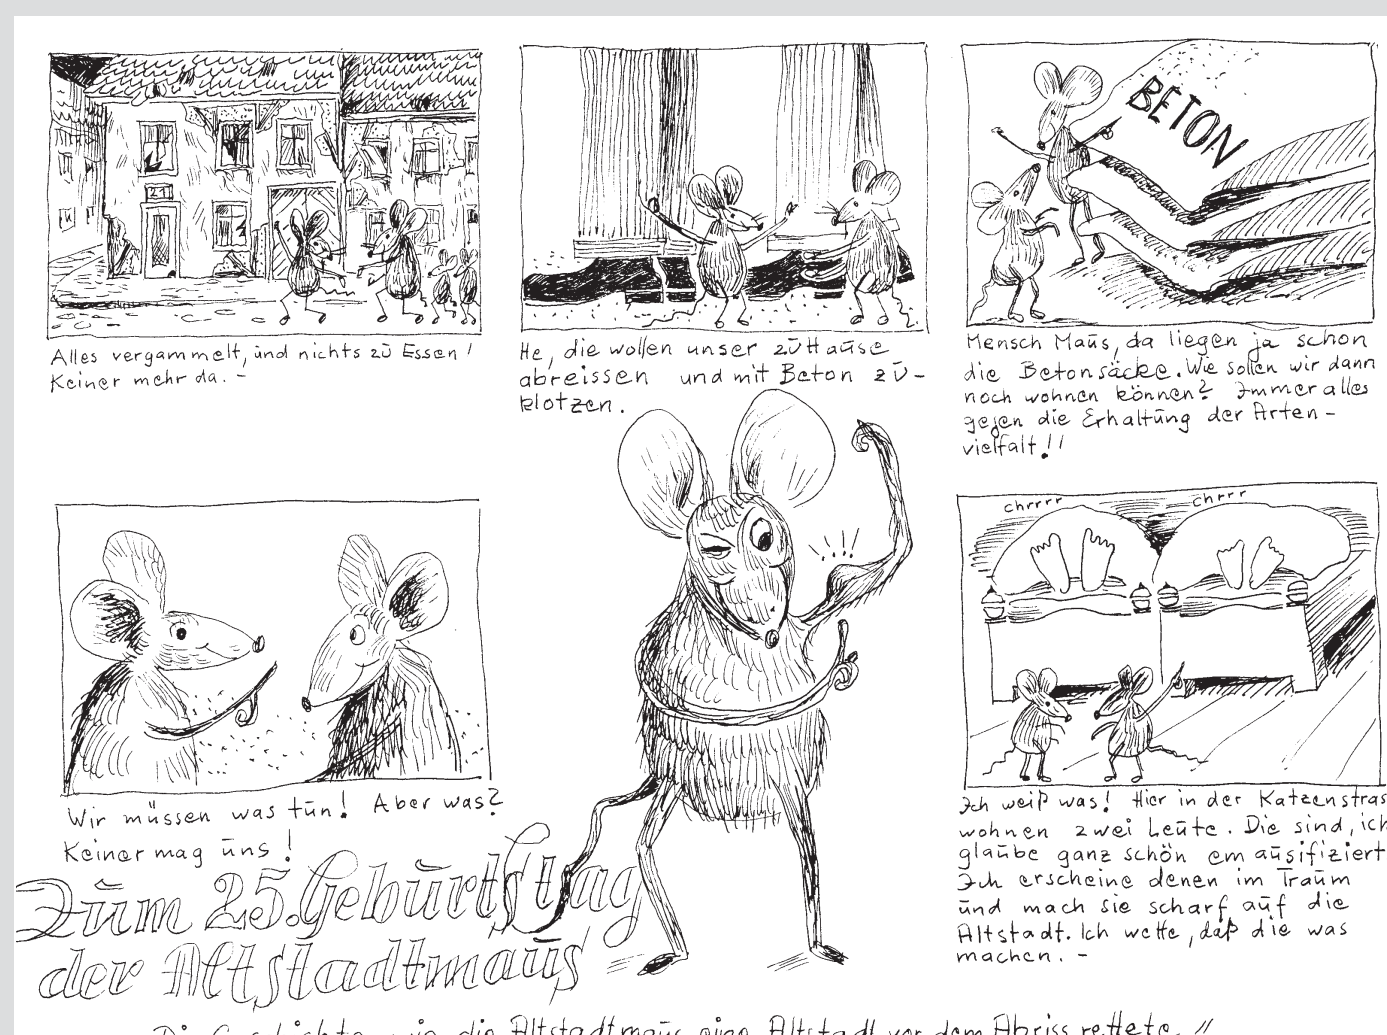 21
Alles vergammelt, und nichts zu Essen!
Keiner mehr da. -
He, die wollen unser zuHause
abreissen und mit Beton zu-
klotzen.
BETON
Mensch Maus, da liegen ja schon
die Betonsäcke. Wie sollen wir dann
noch wohnen können? Immer alles
gegen die Erhaltung der Arten-
vielfalt!!
Wir müssen was tun! Aber was?
Keiner mag uns!
chrrrr chrrr
Ich weiß was! Hier in der Katzenstras
wohnen zwei Leute. Die sind, ich
glaube ganz schön emausifiziert
Ich erscheine denen im Traum
und mach sie scharf auf die
Altstadt. Ich wette, daß die was
machen. -
Zum 25. Geburtstag
der Altstadtmaus
Die Geschichte wie die Altstadtmaus eine Altstadt vor dem Abriss rettete. !!